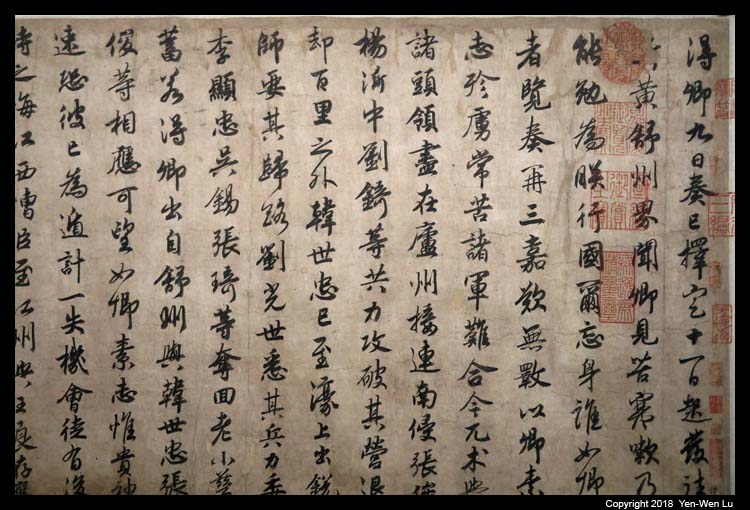 得卿九日奏已擇定十一日起發往
黃舒州界聞卿見苦寒嗽乃
能勉為朕行國爾忘身誰如卿
者覽奏再三嘉歎無斁以卿素
志殄虜常苦諸軍難合今兀朮與
諸頭領盡在廬州接連南侵張俊
楊沂中劉錡等共力攻破其營退
却百里之外韓世忠已至濠上出銳
師要其歸路劉光世悉其兵力委
李顯忠吳錫張琦等奪回老小孳
畜若得卿出自舒州與韓世忠張
俊等相應可望如卿素志惟貴神
速恐彼已為遁計一失機會徒有後
時之悔江西漕臣至江州與王良存應
Copyright 2018 Yen-Wen Lu